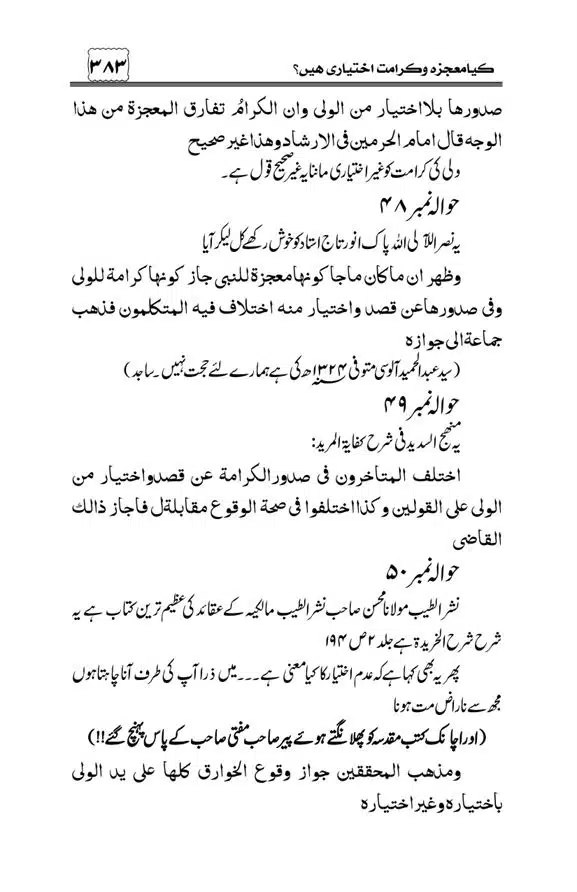 کیا معجزہ و کرامت اختیاری ھیں؟
۳۸۳
صدورها بلا اختیار من الولی وان الکرامُ تفارق المعجزة من هذا
الوجه قال امام الحرمین فی الارشاد وهذا غیر صحیح
ولی کی کرامت کو غیر اختیاری ماننا یہ غیر صحیح قول ہے۔
حوالہ نمبر ۴۸
یہ نصر اللآلی اللہ پاک انور تاج استاد کو خوش رکھے کل لیکر آیا
وظهر ان ما کان ماجا کونها معجزة للنبی جاز کونها کرامة للولی
وفی صدورها عن قصد واختیار منه اختلاف فیه المتکلمون فذهب
جماعة الی جوازه
(سید عبد الحمید آلوسی متوفی ۱۳۲۴ھ کی ہے ہمارے لئے حجت نہیں۔ ساجد)
حوالہ نمبر ۴۹
یہ منھج السدید فی شرح کفایۃ المرید:
اختلف المتاخرون فی صدور الکرامة عن قصد واختیار من
الولی علی القولین وکذا اختلفوا فی صحة الوقوع مقابلة ل فاجاز ذالك
القاضی
حوالہ نمبر ۵۰
نشر الطیب مولانا محسن صاحب نشر الطیب مالکیہ کے عقائد کی عظیم ترین کتاب ہے یہ
شرح شرح الخریدۃ ہے جلد ۲ ص ۱۹۴
پھر یہ بھی کہا ہے کہ عدم اختیار کا کیا معنی ہے۔۔۔ میں ذرا آپ کی طرف آنا چاہتا ہوں
مجھ سے ناراض مت ہونا
(اور اچانک کتب مقدسہ کو پھلانگتے ہوئے پیر صاحب مفتی صاحب کے پاس پہنچ گئے!!)
ومذهب المحققین جواز وقوع الخوارق کلها علی ید الولی
باختیاره وغیر اختیاره